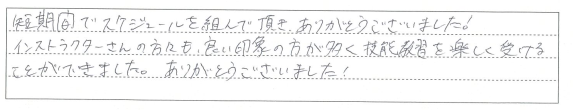 短期間でスケジュールを組んで頂き、ありがとうございました!
インストラクターさんの方々も、良い印象の方が多く技能教習を楽しく受ける
ことができました。ありがとうございました!